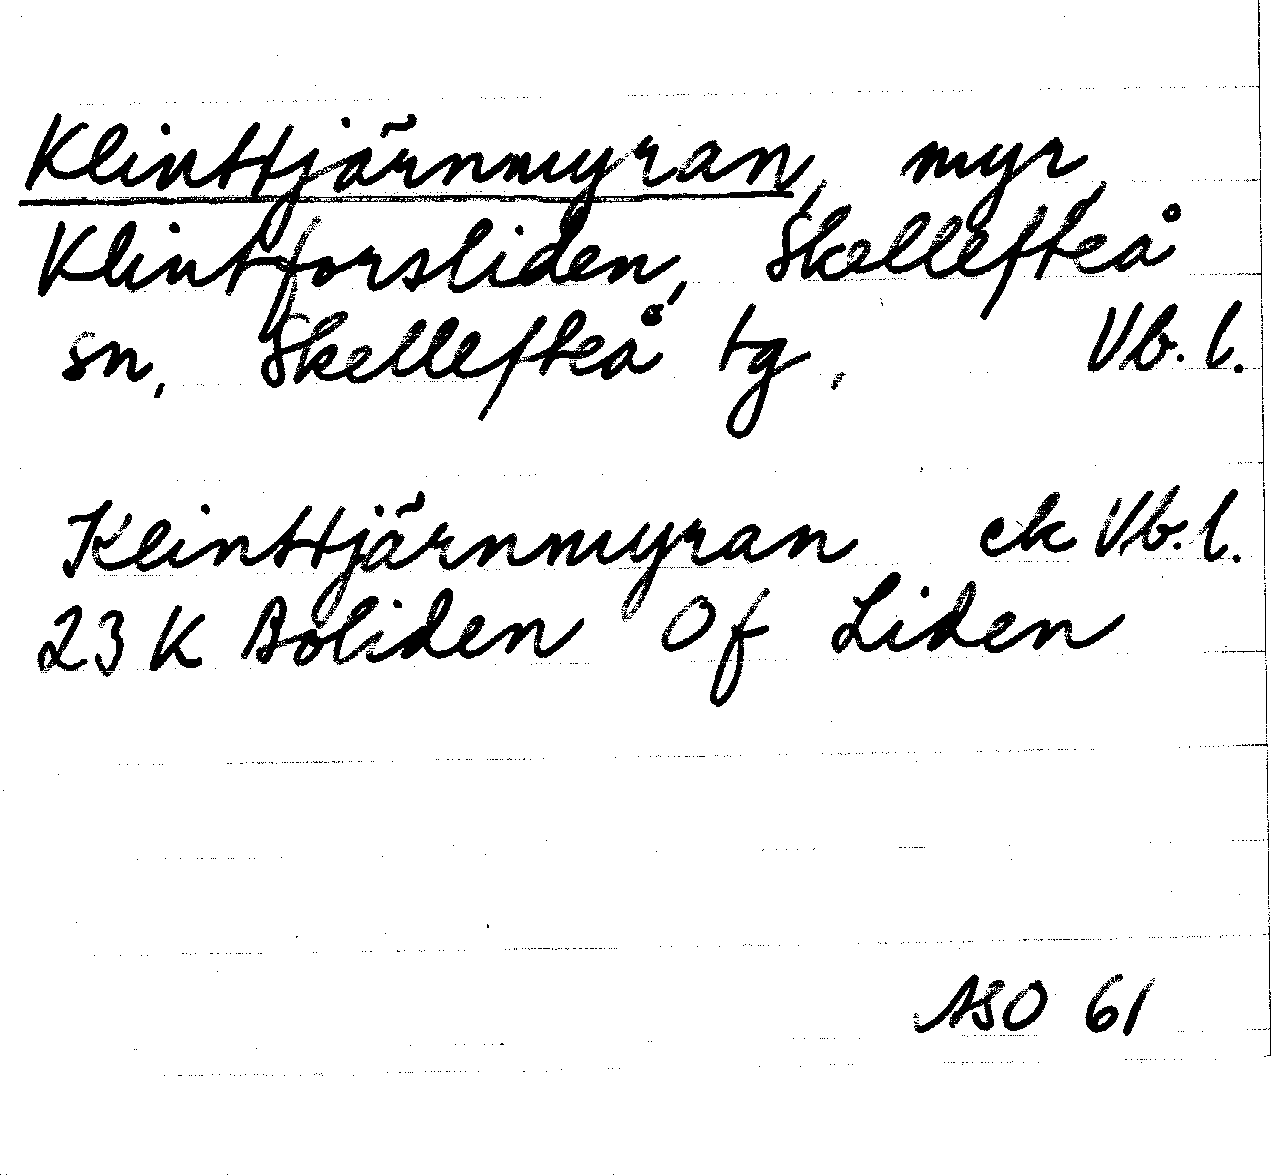 Klinttjärnmyran, myr
Klintforsliden, Skellefteå
sn, Skellefteå tg, Vb. l.
Klinttjärnmyran ek Vb. l.
23 K Boliden Of Liden
ASO 61